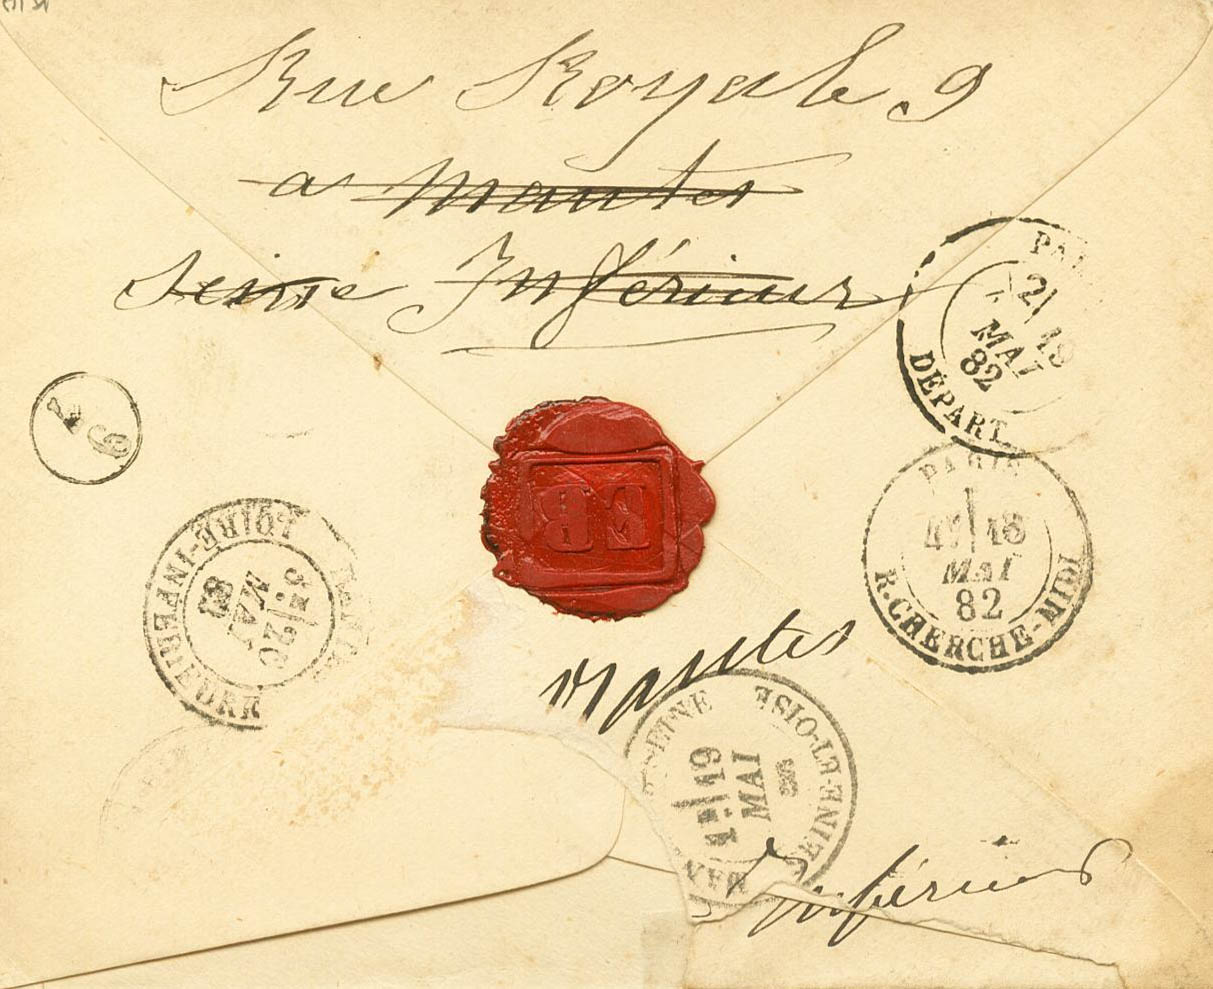 Rue Royale 9
a Mantes
Seine Inférieur
PA
21
19
MAI
82
DÉPART
PARIS
4E 18
MAI
82
R. CHERCHE-MIDI
LOIRE-INFERIEURE
20
MAI
EB
Nantes
SEINE-ET-OISE
1E 19
MAI
Inférieur